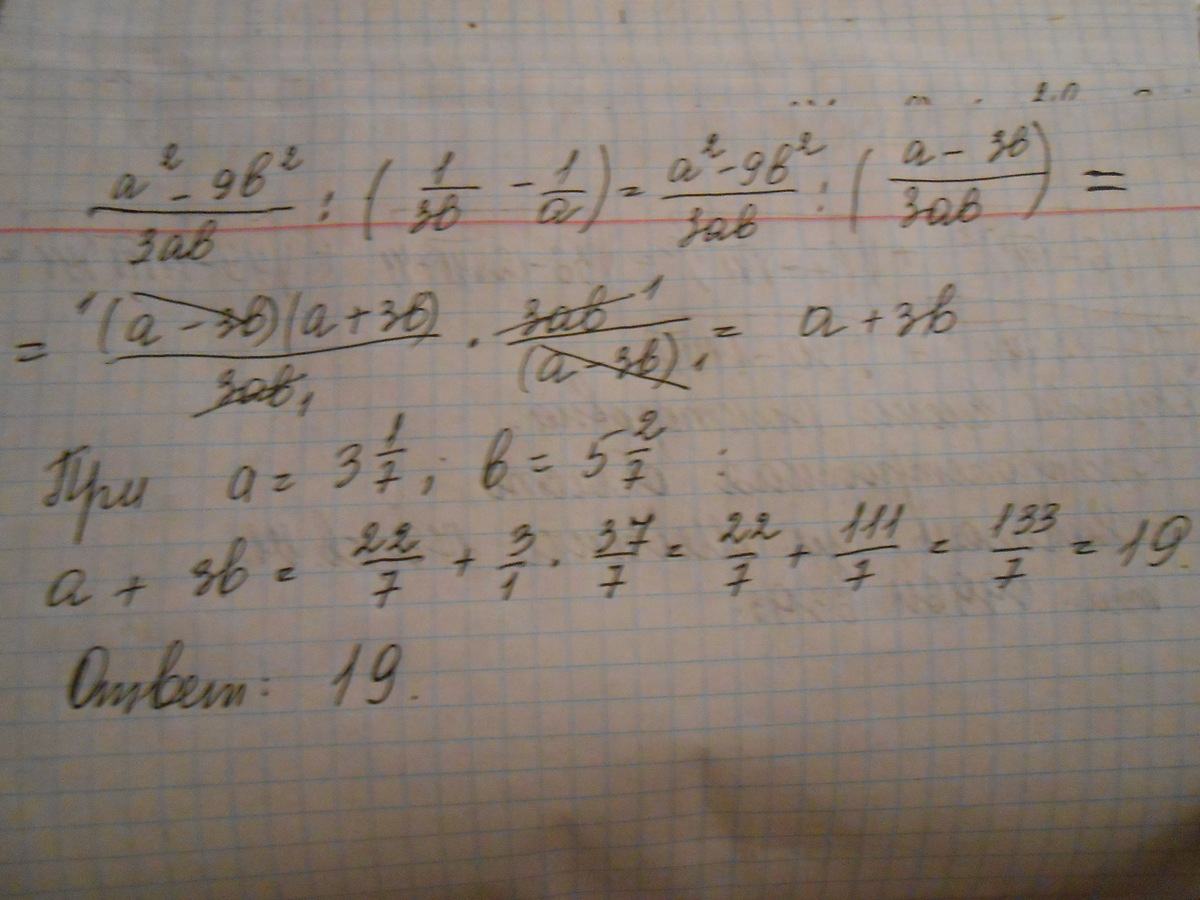 (a² - 9b²)/(3ab) : (1/(3b) - 1/a) = (a² - 9b²)/(3ab) : ((a - 3b)/(3ab)) =
= ¹(a - 3b)(a + 3b)/(3ab ₁) · (3ab ¹)/((a - 3b) ₁) = a + 3b
При a = 3 1/7; b = 5 2/7:
a + 3b = 22/7 + 3/1 · 37/7 = 22/7 + 111/7 = 133/7 = 19.
Ответ: 19.